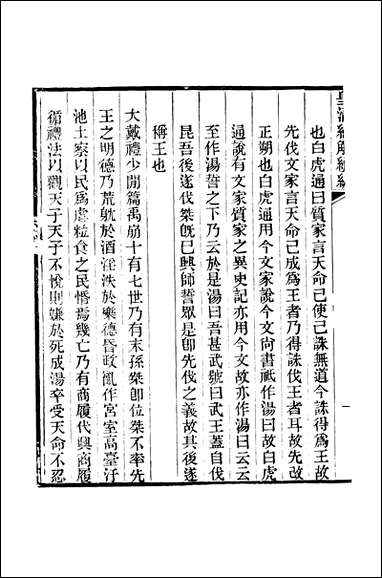 皇清經解續編
也白虎通曰質家言天命己使己誅無道今誅得為王故
先伐文家言天命己成為王者乃得誅伐王者耳故先改
正朔也白虎通用今文家說今文尚書祗作湯曰故白虎
通說有文家質家之異史記亦用今文故亦作湯曰云云
至作湯誓之下乃云於是湯曰吾甚武號曰武王蓋自伐
昆吾後遂伐桀旣巳興師誓眾是卽先伐之義故其後遂
稱王也
大戴禮少閒篇禹崩十有七世乃有末孫桀卽位桀不率先
王之明德乃荒躭於酒淫泆於樂德昏政亂作宮室高臺汙
池土察以民為虐粒食之民惛焉幾亡乃有商履代興商履
循禮法以觀天子天子不悅則嫌於死成湯卒受天命不忍